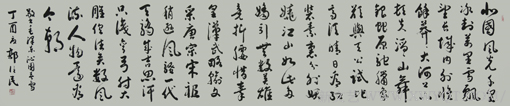 北國風光千里
冰封萬里雪飄
望長城内外惟
餘莽莽大河上
下頓失滔滔山舞
銀蛇原馳蠟象
欲與天公試比
高須晴日看紅
裝素裹分外妖
嬈江山如此多
嬌引無數英雄
競折腰惜秦
皇漢武略輸文
采唐宗宋祖
稍遜風騷一代
天驕成吉思汗
只識彎弓射大
雕俱往矣數風
流人物還看
今朝
毛澤東沁園春雪
丁酉